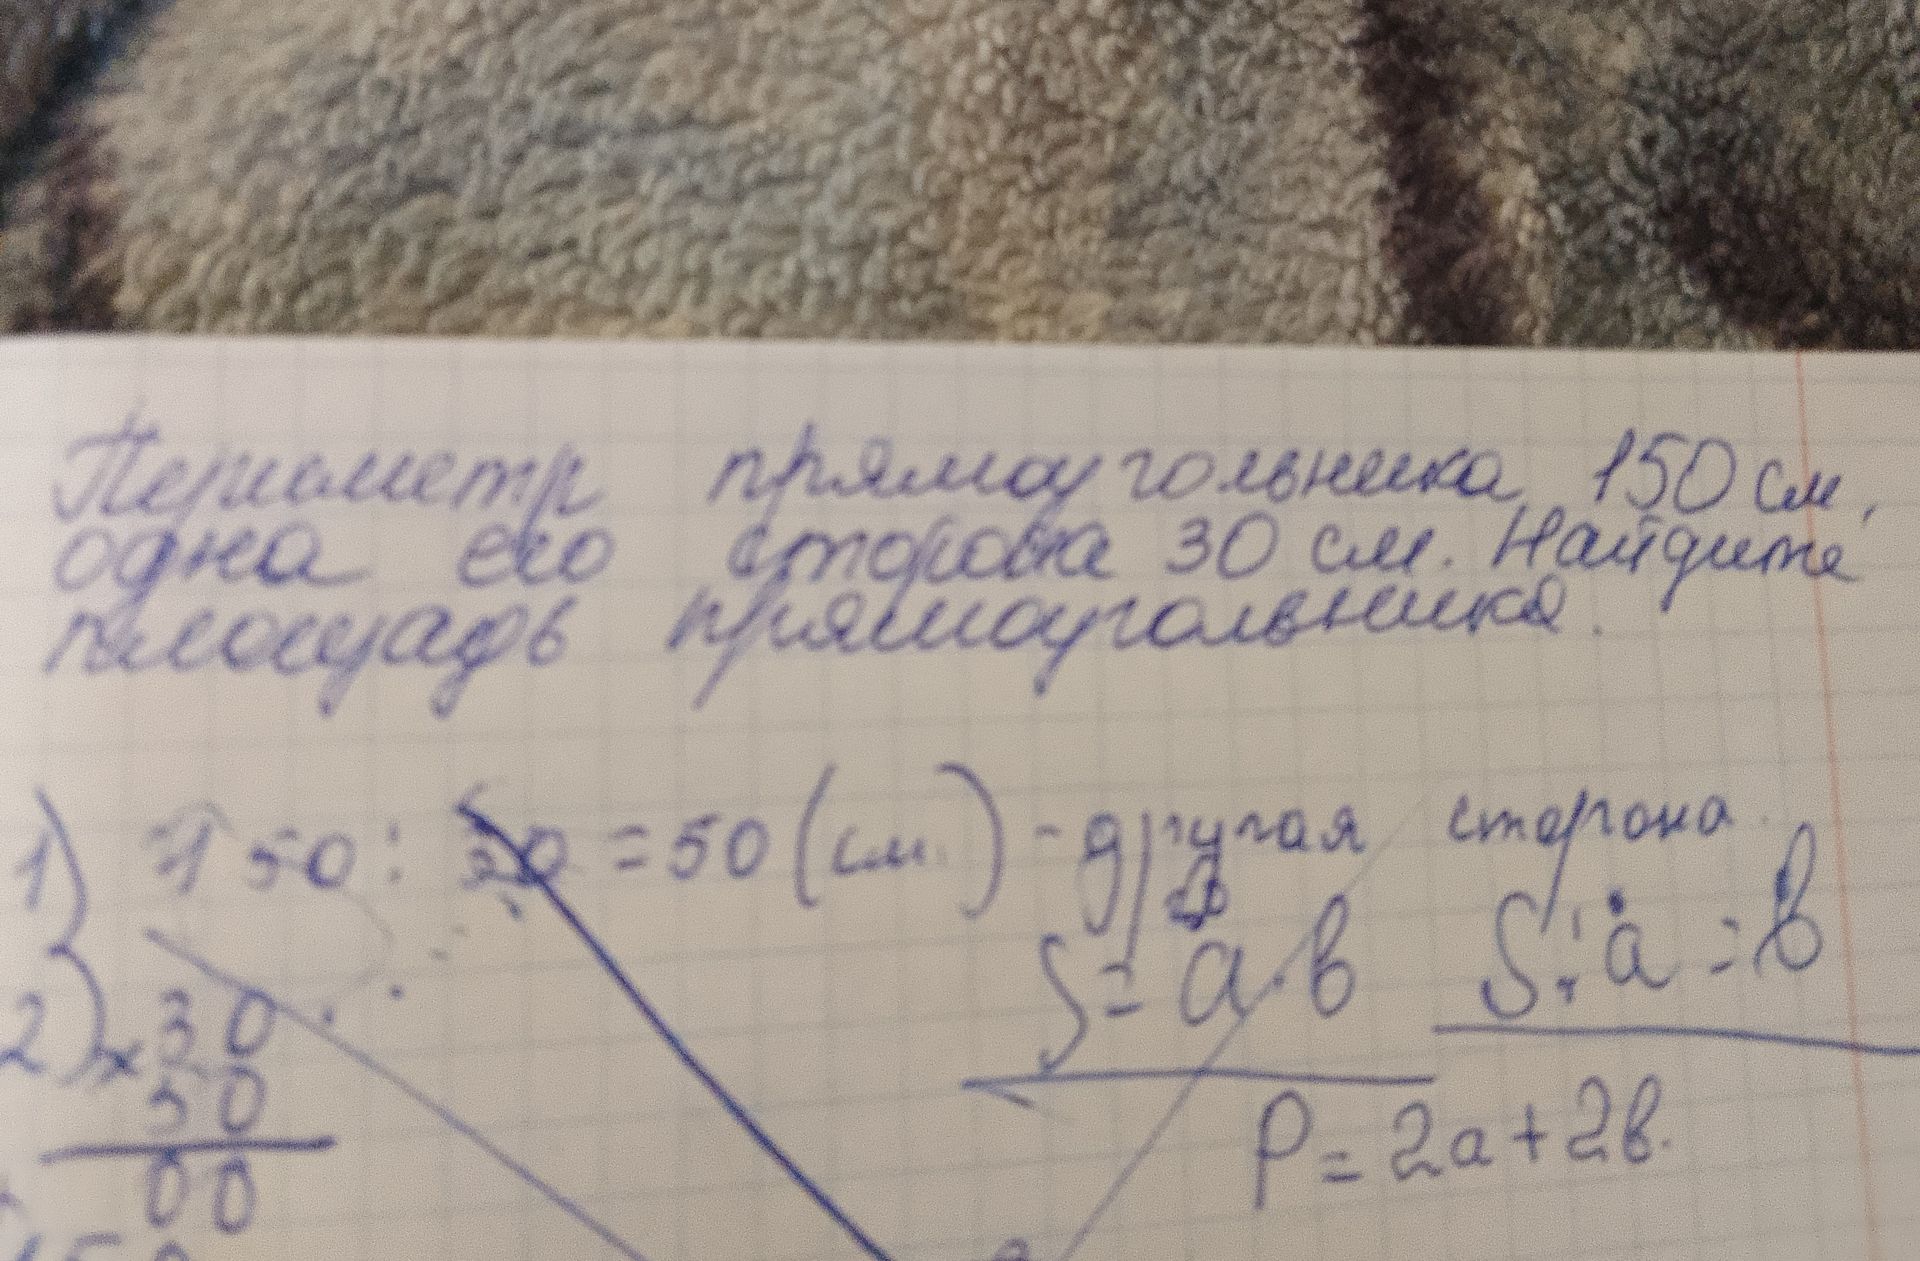 Периметр прямоугольника 150 см,
одна его сторона 30 см. Найдите
площадь прямоугольника.
1) 150 : 30 = 50 (см) - другая сторона
S = a · b S : a = b
2) × 30
50
00
P = 2a + 2b.